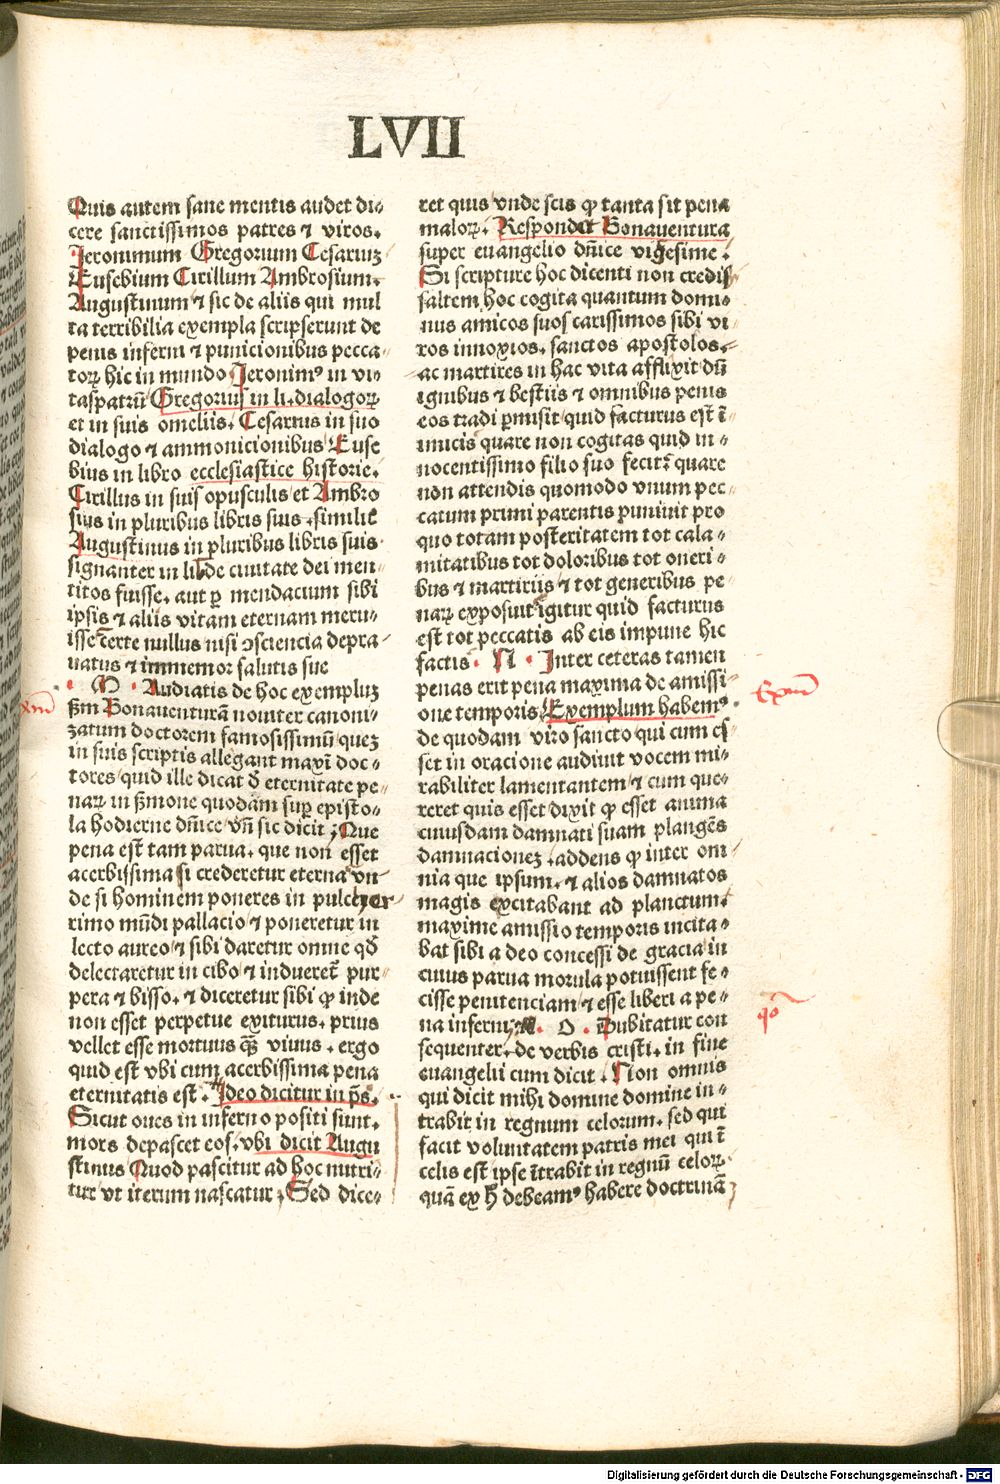 LVII
Quis autem sane mentis audet di⸗
cere sanctissimos patres ⁊ viros.
Jeronimum Gregorium Cesariuꝫ
Eusebium Cirillum Ambrosium.
Augustinum ⁊ sic de aliis qui mul
ta terribilia exempla scripserunt de
penis inferni ⁊ punicionibus pecca⸗
toꝝ hic in mundo Jeronimꝰ in vi⸗
taspatrū Gregorius in li. dialogoꝝ
et in suis omeliis. Cesarius in suo
dialogo ⁊ ammonicionibus Euse
bius in libro ecclesiastice historie.
Cirillus in suis opusculis et Ambro
sius in pluribus libris suis. similiť
Augustinus in pluribus libris suis
signanter in li. de ciuitate dei men⸗
titos fuisse. aut ꝑ mendacium sibi
ipsis ⁊ aliis vitam eternam meru⸗
isse certe nullus nisi ↄsciencia depra⸗
uatus ⁊ immemor salutis sue
M Audiatis de hoc exempluꝫ
ẜm Bonauenturā nouiter canoni⸗
zatum doctorem famosissimū queꝫ
in suis scriptis allegant maxī doc⸗
tores quid ille dicat ď eternitate pe⸗
naꝝ in ẜmone quodam suꝑ episto⸗
la hodierne dn̄ice vn̄ sic dicit ; Que
pena est tam parua. que non esset
acerbissima si crederetur eterna vn⸗
de si hominem poneres in pulcher⸗
rimo mūdi pallacio ⁊ poneretur in
lecto aureo ⁊ sibi daretur omne qď
delectaretur in cibo ⁊ indueret᷑ pur⸗
pera ⁊ bisso. ⁊ diceretur sibi ꝙ inde
non esset perpetue exiturus. prius
vellet esse mortuus qᷓꝫ viuus. ergo
quid est vbi cum acerbissima pena
eternitatis est. Ideo dicitur in ps̄.
Sicut oues in inferno positi sunt.
mors depascet eos. vbi dicit Augu
stinus Quod pascitur ad hoc nutri⸗
tur vt iterum nascatur ; Sed dice⸗
ret quis vnde scis ꝙ tanta sit pena
maloꝝ. Respondet Bonauentura
super euangelio dn̄ice vigesime.
Si scripture hoc dicenti non credis
saltem hoc cogita quantum domi⸗
nus amicos suos carissimos sibi vi⸗
ros innoxios. sanctos apostolos.
ac martires in hac vita afflixit dū
ignibus ⁊ bestiis ⁊ omnibus penis
eos tradi ꝑmisit quid facturus est ī
imicis quare non cogitas quid in⸗
nocentissimo filio suo fecit᷑ quare
non attendis quomodo vnum pec⸗
catum primi parentis puniuit pro
quo totam posteritatem tot cala⸗
mitatibus tot doloribus tot oneri⸗
bus ⁊ martiriis ⁊ tot generibus pe⸗
naꝝ exposuit igitur quid facturus
est tot peccatis ab eis impune hic
factis. N. Inter ceteras tamen
penas erit pena maxima de amissi⸗
one temporis Exemplum habemꝰ
de quodam viro sancto qui cum es⸗
set in oracione audiuit vocem mi⸗
rabiliter lamentantem ⁊ cum que⸗
reret quis esset dixit ꝙ esset anima
cuiusdam damnati suam plangēs
damnacionez. addens ꝙ inter om⸗
nia que ipsum. ⁊ alios damnatos
magis excitabant ad planctum.
maxime amissio temporis incita⸗
bat sibi a deo concessi de gracia in
cuius parua morula potuissent fe⸗
cisse penitenciam ⁊ esse liberi a pe⸗
na inferni; O. Dubitatur con
sequenter. de verbis cristi. in fine
euangelii cum dicit. Non omnis
qui dicit mihi domine domine in⸗
trabit in regnum celorum. sed qui
facit voluntatem patris mei qui ī
celis est ipse ītrabit in regnū celoꝝ.
quā ex ħ debeamꝰ habere doctrinā
Digitalisierung gefördert durch die Deutsche Forschungsgemeinschaft - DFG